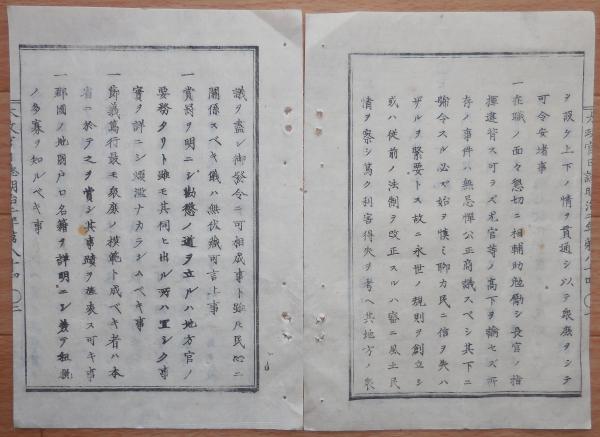 ヲ設ケ上下ノ情ヲ貫通シ以テ衆庶ヲシテ
可令安堵事
一在職ノ面々懇切ニ相輔助勉勵シ長官ノ指
揮違背ス可ラス尤官等ノ高下ヲ論セス所
存ノ事件ハ無忌憚公正商議スヘシ其下ニ
號令スル必ス始ヲ慎ミ聊カ民ニ信ヲ失ハ
ザルヲ緊要トス故ニ永世ノ規則ヲ創立シ
或ハ従前ノ法制ヲ改正スルハ審ニ風土民
情ヲ察シ篤ク利害得失ヲ考ヘ其地方ノ衆
太政官日誌明治二年第八十四
議ヲ盡シ御發令ニ可相成事ト雖トモ民心ニ
關係スベキ儀ハ無伏蔵可言上事
一賞罰ヲ明ニシ勸懲ノ道ヲ立ルハ地方官ノ
要務タリト雖モ其伺ヒ出ル所ハ宜シク事
實ヲ詳ニシ煩濫ナカラシムベキ事
一節義篤行最モ衆庶ノ模範ト成ベキ者ハ本
省ニ於テ之ヲ賞シ其事蹟ヲ旌表ス可キ事
一郡國ノ地圖戸口名籍ヲ詳明ニシ
ノ多寡ヲ知ルベキ事